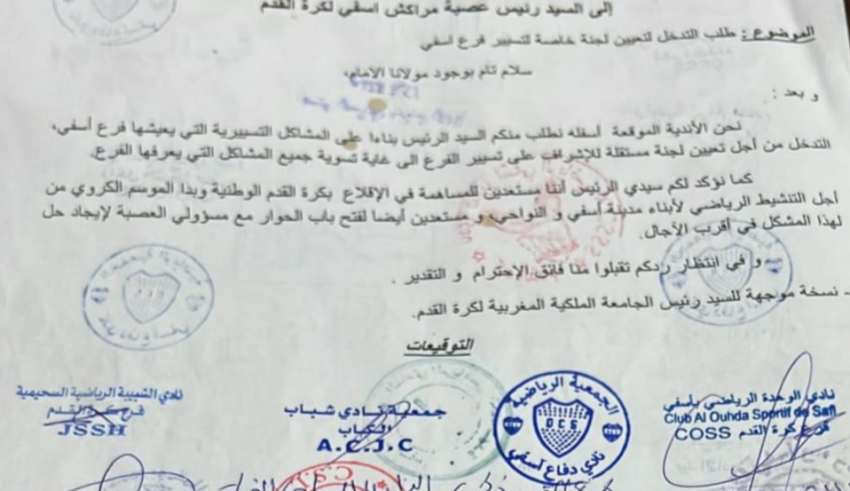 إلى السيد رئيس عصبة مراكش اسفي لكرة القدم
الموضوع : طلب التدخل لتعيين لجنة خاصة لتسيير فرع اسفي
سلام تام بوجود مولانا الامام،
و بعد :
نحن الأندية الموقعة أسفله نطلب منكم السيد الرئيس بناءا على المشاكل التسييرية التي يعيشها فرع أسفي،
التدخل من أجل تعيين لجنة مستقلة للإشراف على تسيير الفرع الى غاية تسوية جميع المشاكل التي يعرفها الفرع.
كما نؤكد لكم سيدي الرئيس أننا مستعدين للمساهمة في الإقلاع بكرة القدم الوطنية وبذا الموسم الكروي من
أجل التنشيط الرياضي لأبناء مدينة أسفي و النواحي، و مستعدين أيضا لفتح باب الحوار مع مسؤولي العصبة لإيجاد حل
لهذا المشكل في أقرب الآجال.
و في انتظار ردكم تقبلوا منا فائق الإحترام و التقدير .
- نسخة موجهة للسيد رئيس الجامعة الملكية المغربية لكرة القدم.
التوقيعات
نادي الوحدة الرياضي بأسفي
Club Al Ouhda Sportif de Safi
فرع كرة القدم COSS
الجمعية الرياضية
OCS
نادي دفاع أسفي
جمعية نادي شباب
A.C.J.C
نادي الشبيبة الرياضية السحيمية
فرع كرة القدم
JSSH